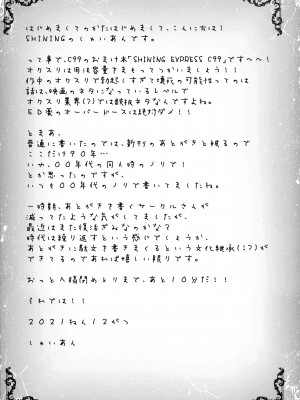 はじめましてのかたはじめまして、こんにちは!
SHININGのしゃいあんです。
って事で、C99のおまけ本「SHINING EXPRESS C99」です〜〜!
オクスリは用法容量きまもってつかいましょう!!
作中のオクスリで勃起しすぎて壊死の可能性ってのは
話は、映画のネタになっているレベルで
オクスリ業界(?)では鉄板ネタなんですよね。
ED薬のオーバードーズは絶対ダメ!!
とまあ、
普通に書いたのでは、新刊のあとがきと被るので
ここだけ90年…
いや、00年代の同人時のノリで!
とか思ったのですが、
いつも00年代のノリで書いてましたね。
一時期、あとがきで書くサークルさんが
減ってたような気がしてましたが、
最近はまた復活ぎみなのかな?
時代は繰り返すという感じでしょうか、
あとがきに駄文を書きまくるという文化継承(!?)が
できてるのであれば嬉しい限りです。
おっと入稿閉めとりまで、あと10分だ!!
それでは!!
2021ねん12がつ
しゃいあん